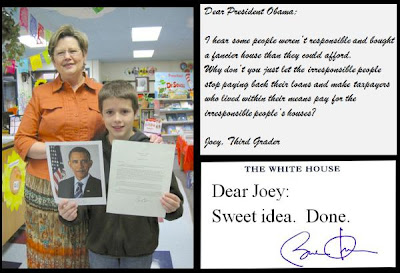 Dear President Obama:
I hear some people weren't responsible and bought
a fancier house than they could afford.
Why don't you just let the irresponsible people
stop paying back their loans and make taxpayers
who lived within their means pay for the
irresponsible people's houses?
Joey, Third Grader
THE WHITE HOUSE
Dear Joey:
Sweet idea. Done.